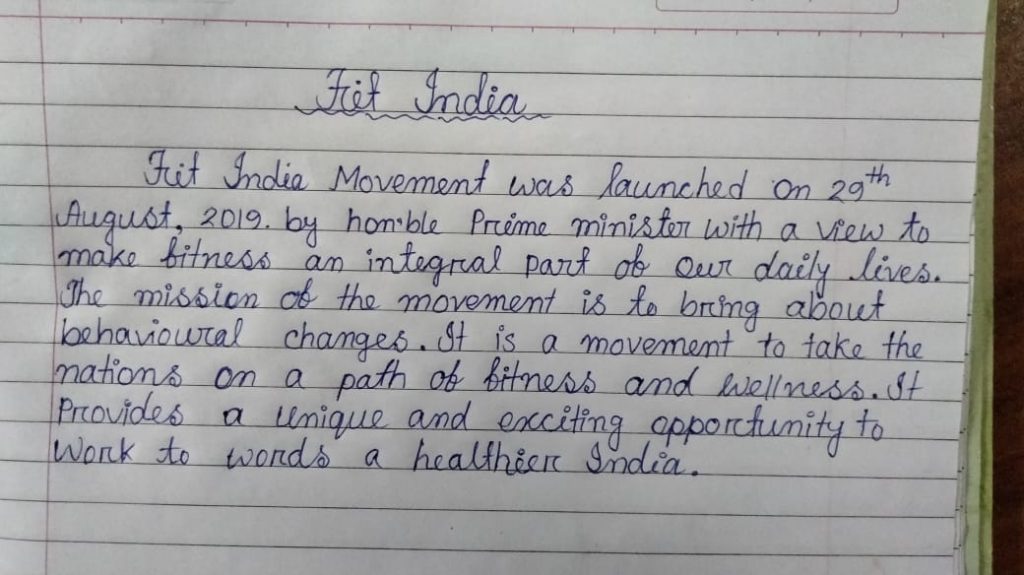 Fit India
Fit India Movement was launched on 29th
August, 2019. by hon'ble Prime minister with a view to
make fitness an integral part of our daily lives.
The mission of the movement is to bring about
behavioural changes. It is a movement to take the
nations on a path of fitness and wellness. It
Provides a unique and exciting opportunity to
Work to words a healthier India.